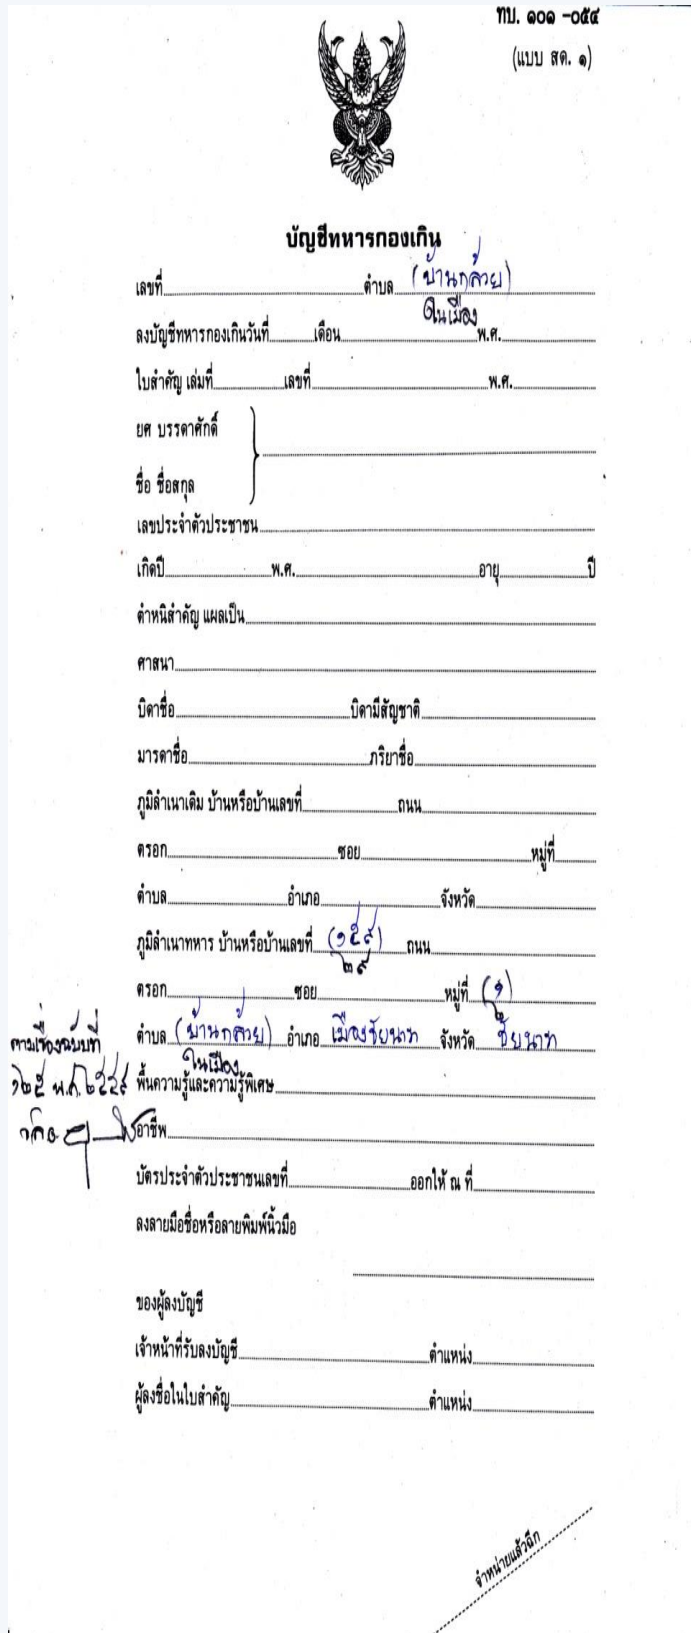 ทบ. ๑๐๑ -๐๕๔
(แบบ สด. ๑)
บัญชีทหารกองเกิน
เลขที่ ตำบล (บ้านกล้วย)
ในเมือง
ลงบัญชีทหารกองเกินวันที่ เดือน พ.ศ.
ใบสำคัญ เล่มที่ เลขที่ พ.ศ.
ยศ บรรดาศักดิ์
ชื่อ ชื่อสกุล
เลขประจำตัวประชาชน
เกิดปี พ.ศ. อายุ ปี
ตำหนิสำคัญ แผลเป็น
ศาสนา
บิดาชื่อ บิดามีสัญชาติ
มารดาชื่อ ภริยาชื่อ
ภูมิลำเนาเดิม บ้านหรือบ้านเลขที่ ถนน
ตรอก ซอย หมู่ที่
ตำบล อำเภอ จังหวัด
ภูมิลำเนาทหาร บ้านหรือบ้านเลขที่ (๑๕๙) ถนน
๒๙
ตรอก ซอย หมู่ที่ (๑)
๒
ตำบล (บ้านกล้วย) อำเภอ เมืองชัยนาท จังหวัด ชัยนาท
ในเมือง
ตามเรื่องฉบับที่
๑๒๕ พ.ศ. ๒๕๔๙
พื้นความรู้และความรู้พิเศษ
อาชีพ
บัตรประจำตัวประชาชนเลขที่ ออกให้ ณ ที่
ลงลายมือชื่อหรือลายพิมพ์นิ้วมือ
ของผู้ลงบัญชี
เจ้าหน้าที่รับลงบัญชี ตำแหน่ง
ผู้ลงชื่อในใบสำคัญ ตำแหน่ง
จำหน่ายแล้วฉีก